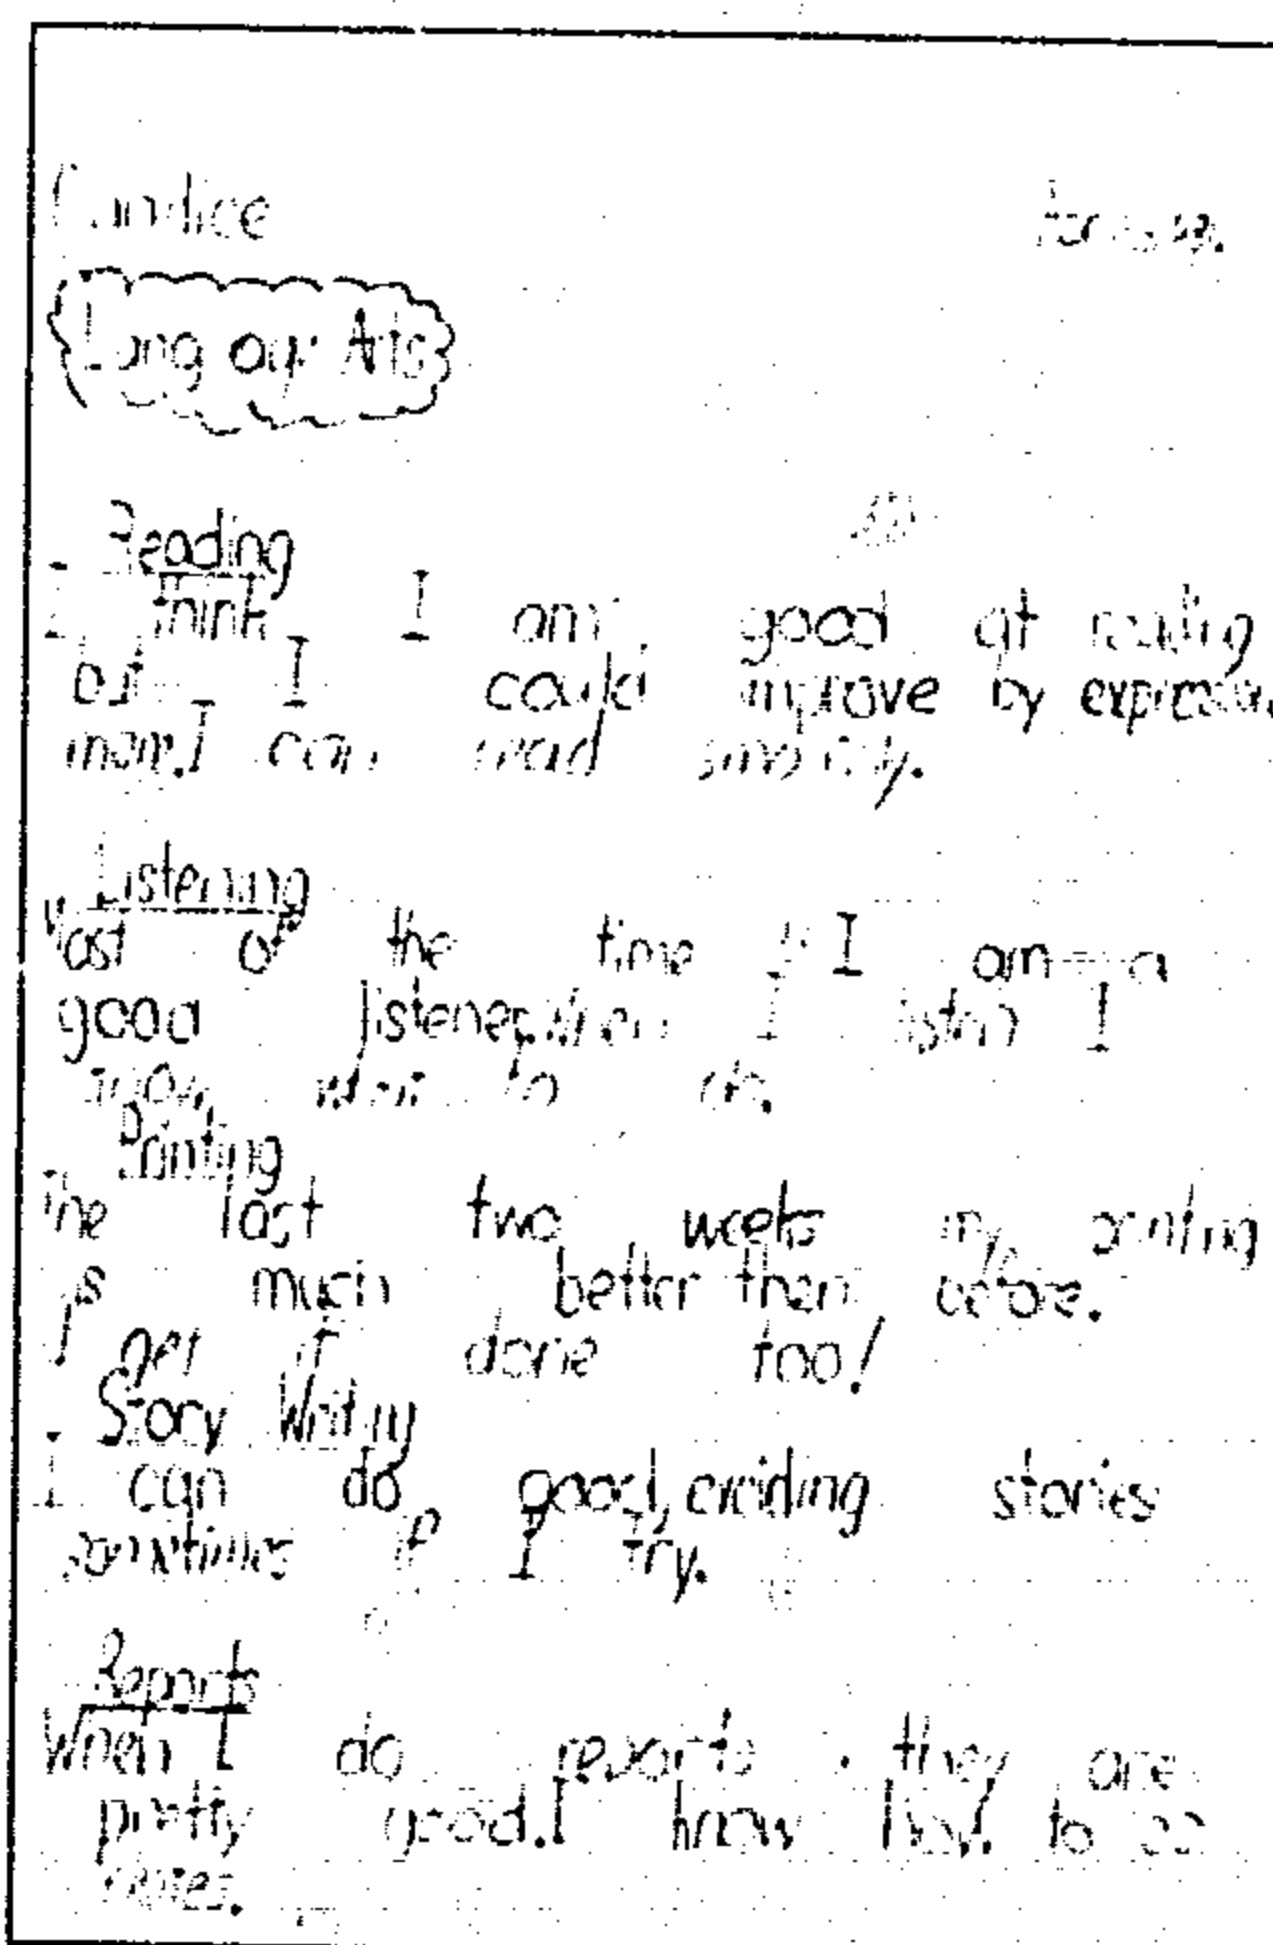 Candice
Language Arts
Reading
I think I am good at reading
but I could improve by expression
more. I can read smoothly.
Listening
Most of the time I am a
good listener. When I listen I
know what to do.
Printing
The last two weeks my printing
is much better than before.
I get it done too!
Story Writing
I can do good, exciding stories
sometimes if I try.
Reports
When I do reports they are
pretty good. I know how to do
notes.